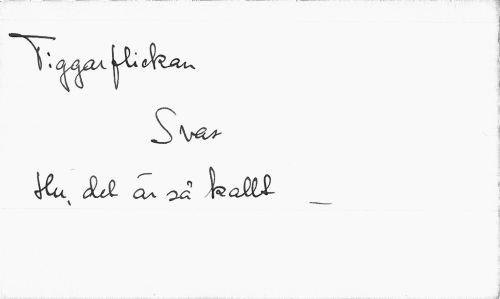 Tiggarflickan
Svar
Hu, det är så kallt _